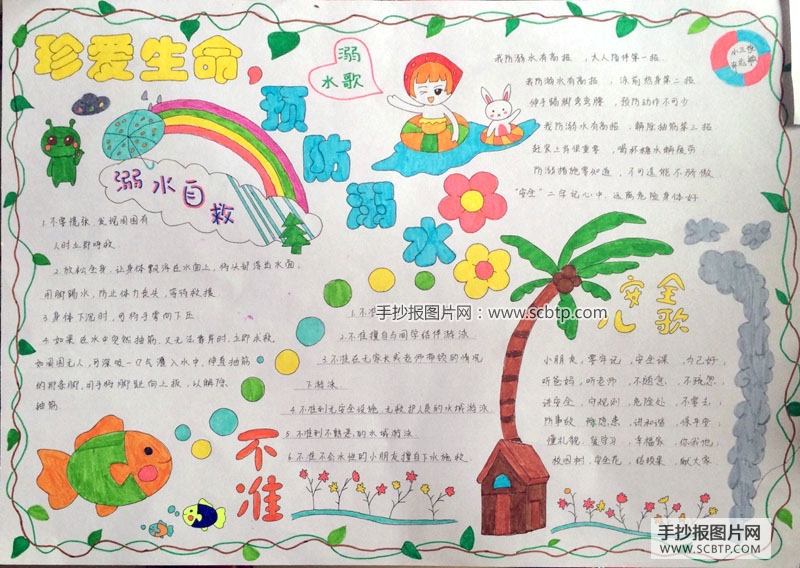 珍爱生命,
预防溺水
溺
水歌
我防溺水有高招,大人陪伴第一招
我防溺水有高招,泳前热身第二招
伸手踢脚弯弯腰,预防动作不可少
我防溺水有高招,解除抽筋第三招
赶紧上岸很重要,喝杯糖水解疲劳
防溺措施要知道,不可逞能不骄傲
"安全"二字记心中,远离危险身体好
溺水自救
1.不要慌张,发现周围有
人时立即呼救
2.放松全身,让身体飘浮在水面上,将头部浮出水面,
用脚踢水,防止体力丧失,等待救援
3.身体下沉时,可将手掌向下压
4.如果在水中突然抽筋,又无法靠岸时,立即求救
如周围无人,可深吸一口气潜入水中,伸直抽筋
的那条腿,用手将脚趾向上扳,以解除
抽筋
不准
2.不准擅自与同学结伴游泳
3.不准在无家长或老师带领的情况
下游泳
4.不准到无安全设施、无救护人员的水域游泳
5.不准到不熟悉的水域游泳
6.不准不会水性的小朋友擅自下水施救
安全
儿歌
小朋友,要牢记,安全课,为己好,
听爸妈,听老师,不随意,
进安全,守规则,危险处,不要去,
懂礼貌,爱学习,幸福家,你我他,
校园树,安全花,结硕果,献大家
手抄报图片网:www.scbtp.com
手抄报图片网
WWW.SCBTP.COM